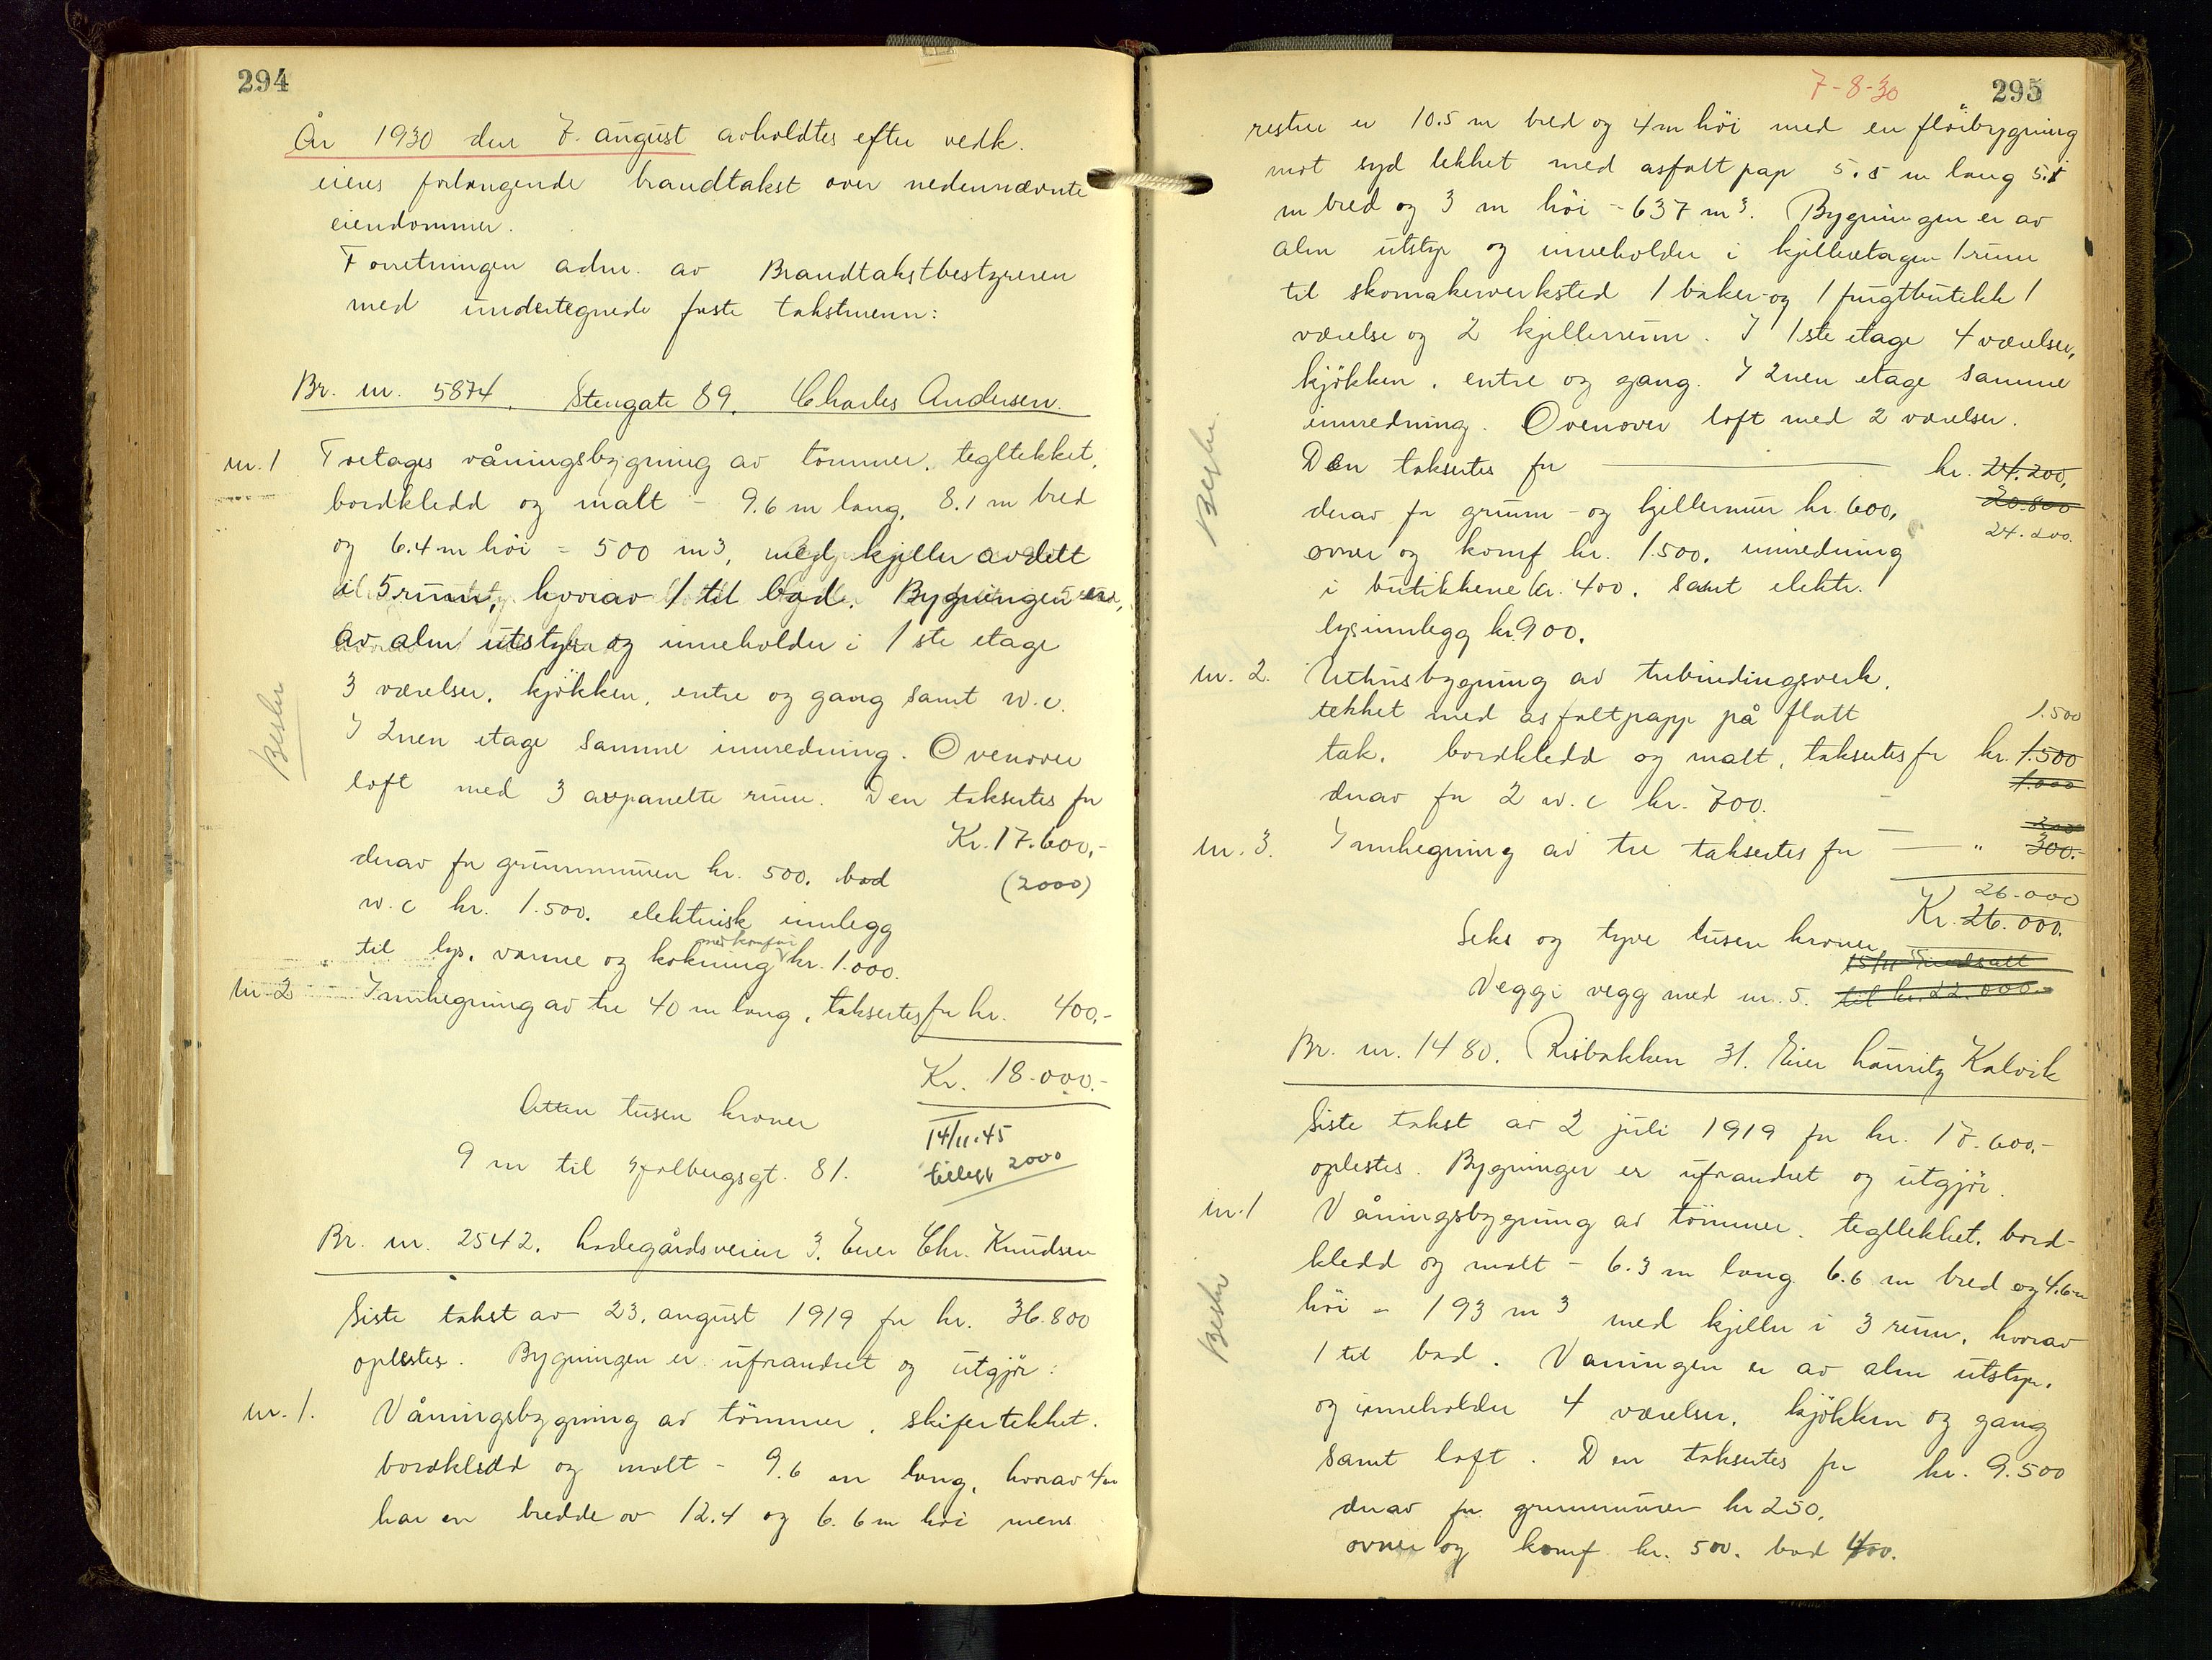 294
År 1930 den 7. august avholdtes efter vedk.
eieres forlangende brandtakst over nedennævnte
eiendommer.
Forretningen adm. av Brandtakstbestyreren
med undertegnede faste takstmenn:
Br. nr. 5874. Stengate 89. Charles Andersen.
nr. 1 Toetages våningsbygning av tömmer, tegltekket,
bordkledd og malt - 9.6 m lang, 8.1 m bred
og 6.4 m höi = 500 m3, med kjeller avdelt
i 5 rum, hvorav 1 til bad. Bygningen er
av alm utstyr og inneholder i 1ste etage
3 værelser, kjökken, entre og gang samt w.c.
I 2nen etage samme innredning. Ovenover
loft med 3 avpanelte rum. Den taksertes for
Kr. 17.600,-
derav for grunnmuren kr. 500. bad (2000)
w.c kr. 1.500. elektrisk innlegg
til lys, varme og kokning med komfur kr. 1.000.
nr. 2 Innhegning av tre 40 m lang, taksertes for kr. 400,-
Kr. 18.000.-
Atten tusen kroner
14/11.45
9 m til Hjalbergsgt. 81.
tillegg 2000
Besku
Br. nr. 2542. Ladegårdsveien 3. Eier Chr. Knudsen
Siste takst av 23. august 1919 for kr. 36.800
oplestes. Bygningen er uforandret og utgjör:
nr. 1. Våningsbygning av tömmer, skifertekket.
bordkledd og malt - 9.6 m lang, hvorav 4 m
har en bredde av 12.4 og 6.6 m höi mens
7-8-30
295
resten er 10.5 m bred og 4 m höi med en flöibygning
mot syd tekket med asfalt pap 5.5 m lang 5.5
m bred og 3 m höi - 637 m3. Bygningen er av
alm utstyr og inneholder i kjelleretagen 1 rum
til skomakerverksted 1 baker- og 1 frugtbutikk 1
værelse og 2 kjellerrum. I 1ste etage 4 værelser,
kjökken, entre og gang. I 2nen etage samme
innredning. Ovenover loft med 2 værelser.
Den taksertes for kr. 24.200,
20.800
derav for grunn- og kjellermur kr. 600,
24.200.
ovner og komf kr. 1.500. innredning
i butikkene kr. 400. samt elektr.
lysinnlegg kr. 900.
nr. 2. Uthusbygning av trebindingsverk,
tekket med asfaltpapp på flatt
1.500
tak, bordkledd og malt, taksertes for kr. 1.500
1.000
derav for 2 w.c kr. 700.
300
nr. 3. Innhegning av tre taksertes for - " 300.-
26.000
Kr. 26.000.
Seks og tyve tusen kroner.
15/11
Vegg i vegg med nr. 5. til kr. 22.000.-
Br. nr. 1480. Risbakken 31. Eier Lauritz Kalvik
Siste takst av 2 juli 1919 for kr. 17.600.-
oplestes. Bygninger er uforandret og utgjör.
nr. 1 Våningsbygning av tömmer, tegltekket, bord-
kledd og malt - 6.3 m lang 6.6 m bred og 4.6 m
höi - 193 m3 med kjeller i 3 rum, hvorav
1 til bad. Vaningen er av alm utstyr.
og inneholder 4 værelser, kjökken og gang
samt loft. Den taksertes for kr. 9.500
derav for grunnmuren kr 250,
ovner og komf kr. 500. bad 400.